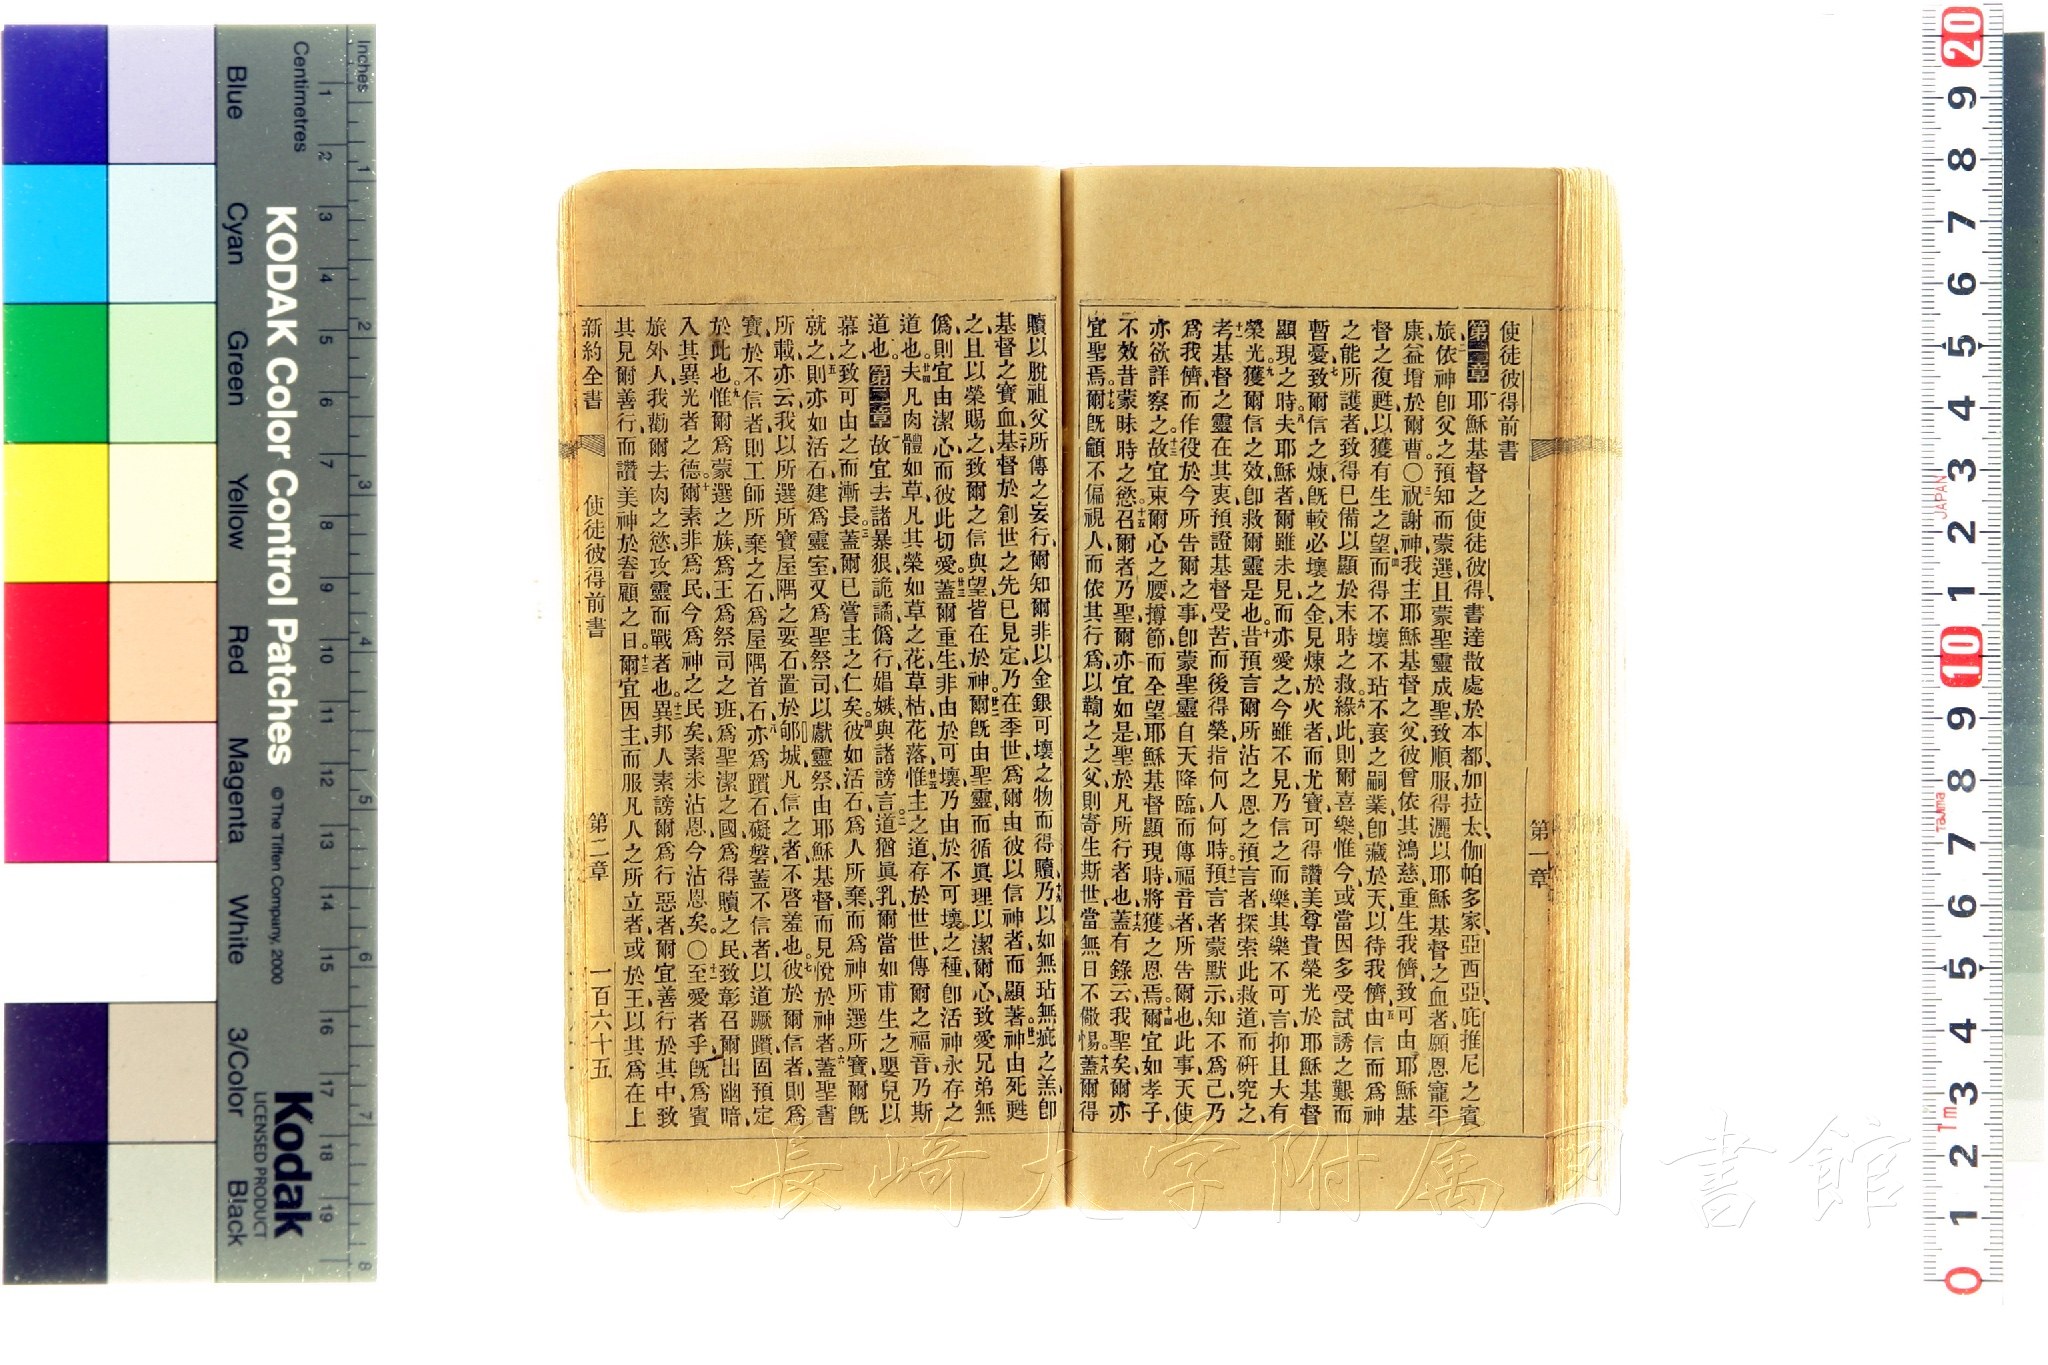 使徒彼得前書
第一章耶穌基督之使徒彼得書達散處於本都加拉太伽帕多家亞西亞庇推尼之賓
旅依神卽父之預知而蒙選且蒙聖靈成聖致順服得灑以耶穌基督之血者願恩寵平
康益增於爾曹〇祝謝神我主耶穌基督之父彼曾依其鴻慈重生我儕致可由耶穌基
督之復甦以獲有生之望而得不壞不玷不衰之嗣業卽藏於天以待我儕由信而爲神
之能所護者致得已備以顯於末時之救緣此則爾喜樂惟今或當因多受試誘之艱而
暫憂致爾信之煉旣較必壞之金見煉於火者而尤寶可得讚美尊貴榮光於耶穌基督
顯現之時夫耶穌者爾雖未見而亦愛之今雖不見乃信之而樂其樂不可言抑且大有
榮光獲爾信之效卽救爾靈是也昔預言爾所沾之恩之預言者探索此救道而研究之
考基督之靈在其衷預證基督受苦而後得榮指何人何時預言者蒙默示知不爲己乃
爲我儕而作役於今所告爾之事卽蒙聖靈自天降臨而傳福音者所告爾也此事天使
亦欲詳察之故宜束爾心之腰撙節而全望耶穌基督顯現時將獲之恩焉爾宜如孝子
不效昔蒙昧時之慾召爾者乃聖爾亦宜如是聖於凡所行者也蓋有錄云我聖矣爾亦
宜聖焉爾旣籲不偏視人而依其行爲以鞫之之父則寄生斯世當無日不儆惕蓋爾得
第一章
贖以脫祖父所傳之妄行爾知爾非以金銀可壞之物而得贖乃以如無玷無疵之羔卽
基督之寶血基督於創世之先已見定乃在季世爲爾由彼以信神者而顯著神由死甦
之且以榮賜之致爾之信與望皆在於神爾旣由聖靈而循眞理以潔爾心致愛兄弟無
僞則宜由潔心而彼此切愛蓋爾重生非由於可壞乃由於不可壞之種卽活神永存之
道也夫凡肉體如草凡其榮如草之花草枯花落惟主之道存於世世傳爾之福音乃斯
道也第二章故宜去諸暴狠詭譎僞行娼嫉與諸謗言道猶眞乳爾當如甫生之嬰兒以
慕之致可由之而漸長蓋爾已嘗主之仁矣彼如活石爲人所棄而爲神所選所寶爾旣
就之則亦如活石建爲靈室又爲聖祭司以獻靈祭由耶穌基督而見悅於神者蓋聖書
所載亦云我以所選所寶屋隅之要石置於郇城凡信之者不啓羞也彼於爾信者則爲
寶於不信者則工師所棄之石爲屋隅首石亦爲躓石礙磐蓋不信者以道蹶躓固預定
於此也惟爾爲蒙選之族爲王爲祭司之班爲聖潔之國爲得贖之民致彰召爾出幽暗
入其異光者之德爾素非爲民今爲神之民矣素未沾恩今沾恩矣〇至愛者乎旣爲賓
旅外人我勸爾去肉之慾攻靈而戰者也異邦人素謗爾爲行惡者爾宜善行於其中致
其見爾善行而讚美神於眷顧之日爾宜因主而服凡人之所立者或於王以其爲在上
新約全書 使徒彼得前書 第二章 一百六十五
長崎大学附属図書館
Inches
Centimetres
KODAK Color Control Patches © The Tiffen Company, 2000
Kodak
LICENSED PRODUCT
Blue Cyan Green Yellow Red Magenta White 3/Color Black
1 2 3 4 5 6 7 8 9 10 11 12 13 14 15 16 17 18 19
1 2 3 4 5 6 7 8
20 9 8 7 6 5 4 3 2 1 10 9 8 7 6 5 4 3 2 1 0
JAPAN
Tajima